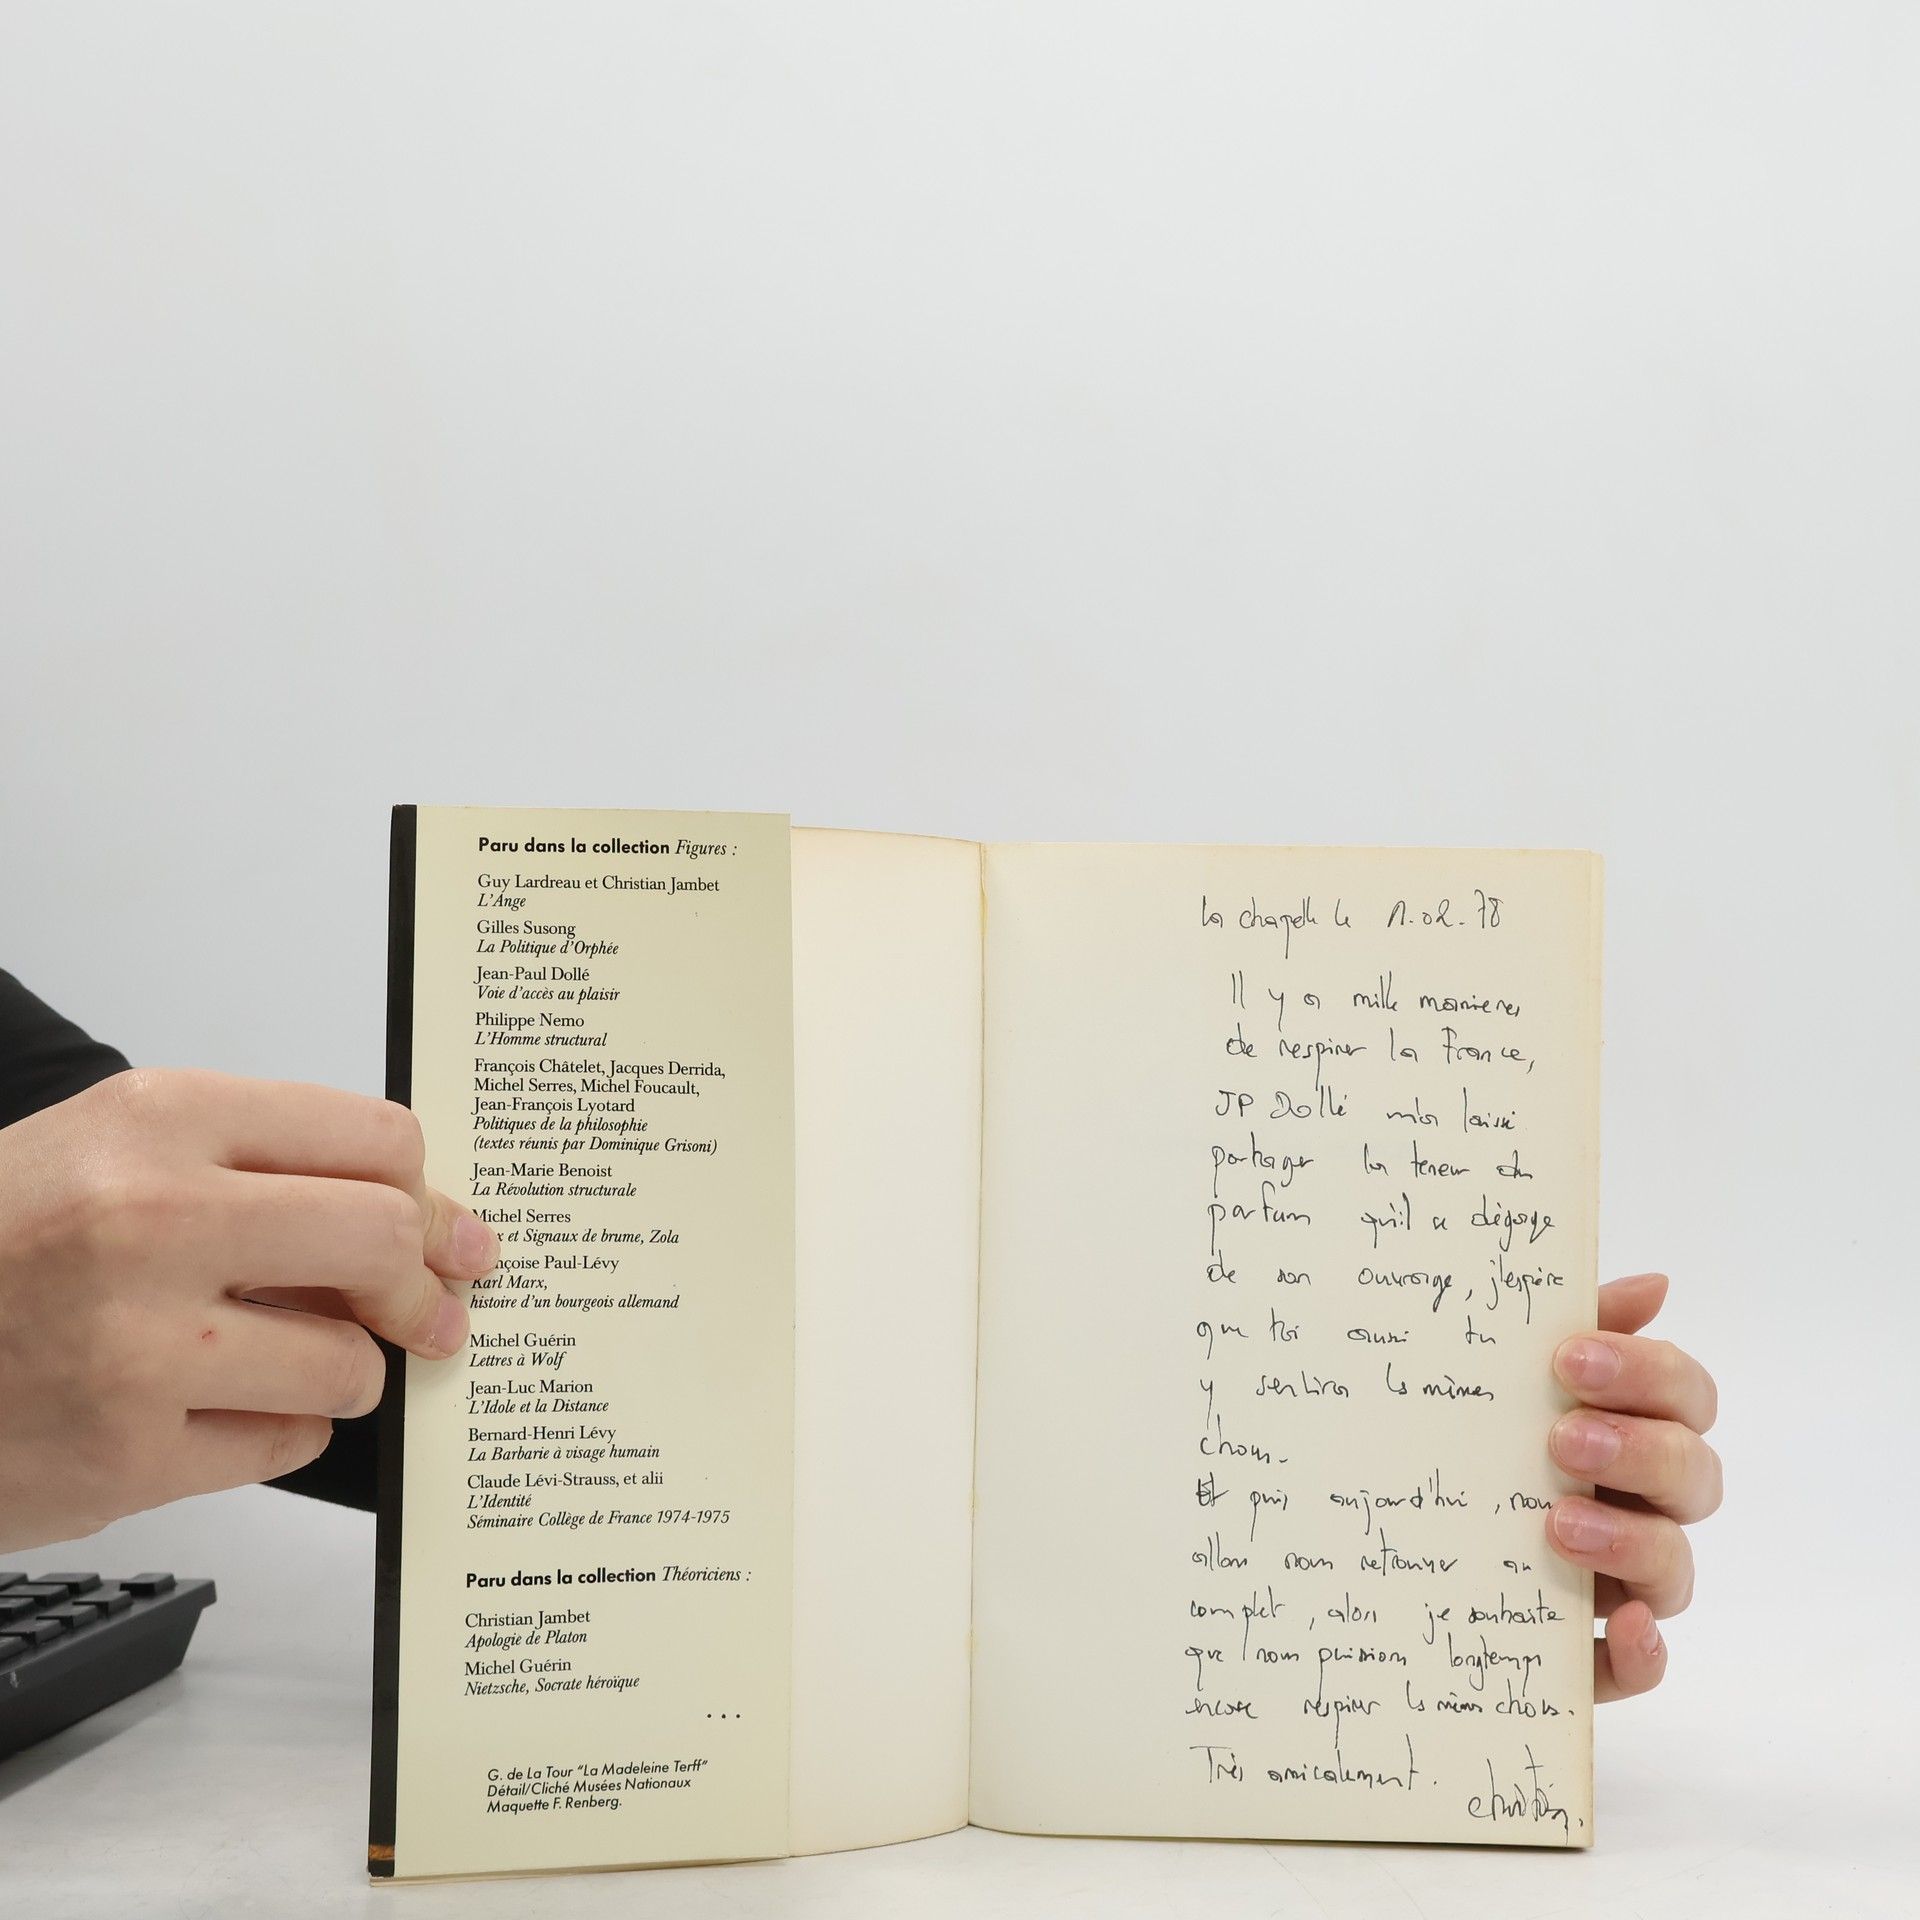 Paru dans la collection Figures :
Guy Lardreau et Christian Jambet
L'Ange
Gilles Susong
La Politique d'Orphée
Jean-Paul Dollé
Voie d'accès au plaisir
Philippe Nemo
L'Homme structural
François Châtelet, Jacques Derrida,
Michel Serres, Michel Foucault,
Jean-François Lyotard
Politiques de la philosophie
(textes réunis par Dominique Grisoni)
Jean-Marie Benoist
La Révolution structurale
Michel Serres
et Signaux de brume, Zola
Paul-Lévy
Karl Marx,
histoire d'un bourgeois allemand
Michel Guérin
Lettres à Wolf
Jean-Luc Marion
L'Idole et la Distance
Bernard-Henri Lévy
La Barbarie à visage humain
Claude Lévi-Strauss, et alii
L'Identité
Séminaire Collège de France 1974-1975
Paru dans la collection Théoriciens :
Christian Jambet
Apologie de Platon
Michel Guérin
Nietzsche, Socrate héroïque
...
G. de La Tour "La Madeleine Terff"
Détail/Cliché Musées Nationaux
Maquette F. Renberg.
la chapelle le 11.02.78
Il y a mille manieres
de respirer la France,
JP Dollé m'a laissé
partager la teneur du
parfum qu'il a dégagé
de son ouvrage, j'espère
que toi aussi tu
y sentiras les mêmes
choses.
Et puis aujourd'hui, nous
allons nous retrouver au
complet, alors je souhaite
que nous puissions longtemps
encore respirer les mêmes choses.
Très amicalement.
Christian.